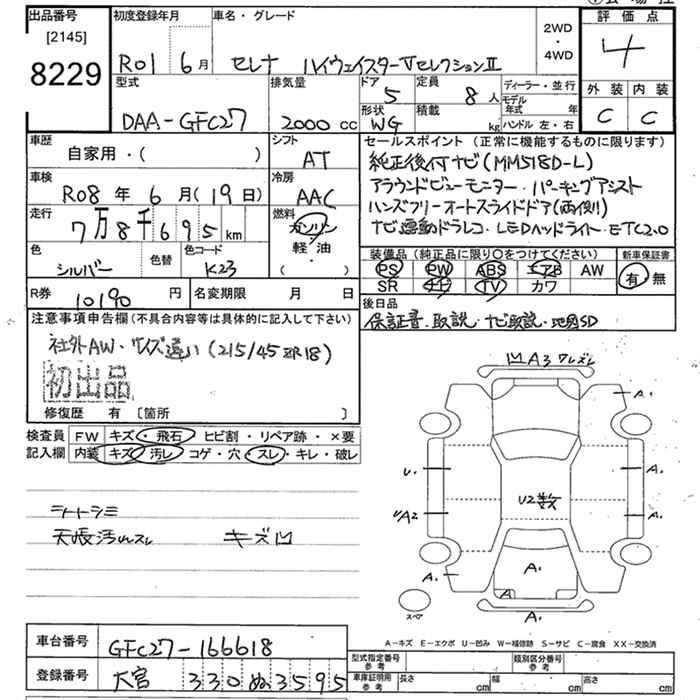 出品番号
[2145]
8229
初度登録年月
R01 6月
車名・グレード
セレナ ハイウェイスターVセレクションⅡ
2WD
・
4WD
評価点
4
外装 内装
C C
型式
DAA-GFC27
排気量
2000 cc
ドア
5
定員
8人
形状
WG
積載
kg
ディーラー・並行
モデル年式 年
ハンドル 左・右
車歴
自家用・( )
シフト
AT
車検
R08年 6月(19日)
冷房
AAC
走行
7万8千695km
燃料
ガソリン
軽・油
( )
色
シルバー
色替
色コード
K23
R券
10190円
名変期限 月 日
セールスポイント(正常に機能するものに限ります)
純正後付ナビ(MM518D-L)
アラウンドビューモニター・パーキングアシスト
ハンズフリーオートスライドドア(両側)
ナビ連動ドラレコ・LEDヘッドライト・ETC2.0
装備品(純正品に限り○をつけてください)
PS PW ABS エアB AW
SR ナビ TV カワ
新車保証書
有・無
後日品
保証書・取説・ナビ取説・地図SD
注意事項申告欄(不具合内容等は具体的に記入して下さい)
社外AW・サイズ違い(215/45ZR18)
初出品
修復歴 有 〔箇所 〕
検査員記入欄
FW キズ・飛石・ヒビ割・リペア跡・×要
内装 キズ・汚レ・コゲ・穴・スレ・キレ・破レ
シートシミ
天張汚レスレ キズ凹
凹A3ワレズレ
A1
U.
A.
UA2
A.
U2数
A.
A.
A.
A
A.
スペア
A-キズ E-エクボ U-凹み W-補修跡 S-サビ C-腐食 XX-交換済
車台番号
GFC27-166618
登録番号
大宮 330ぬ3595
型式指定番号
参考
類別区分番号
参考
車庫証明用
参考
長さ cm
幅 cm
高さ cm